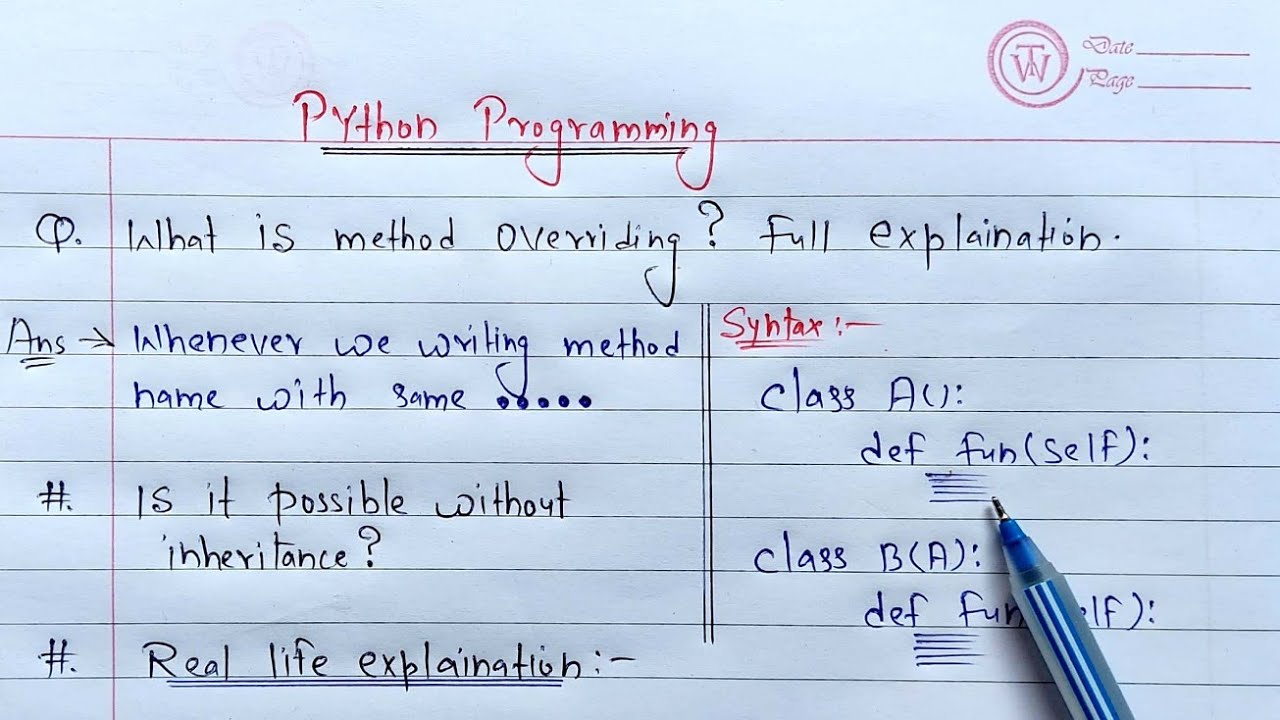 TWN
Date
Page
Python Programming
Q. What is method overriding? Full explaination.
Ans → Whenever we writing method
name with same .....
#. Is it possible without
inheritance?
#. Real life explaination:-
Syntax:-
class A():
def fun(self):
class B(A):
def fun elf):